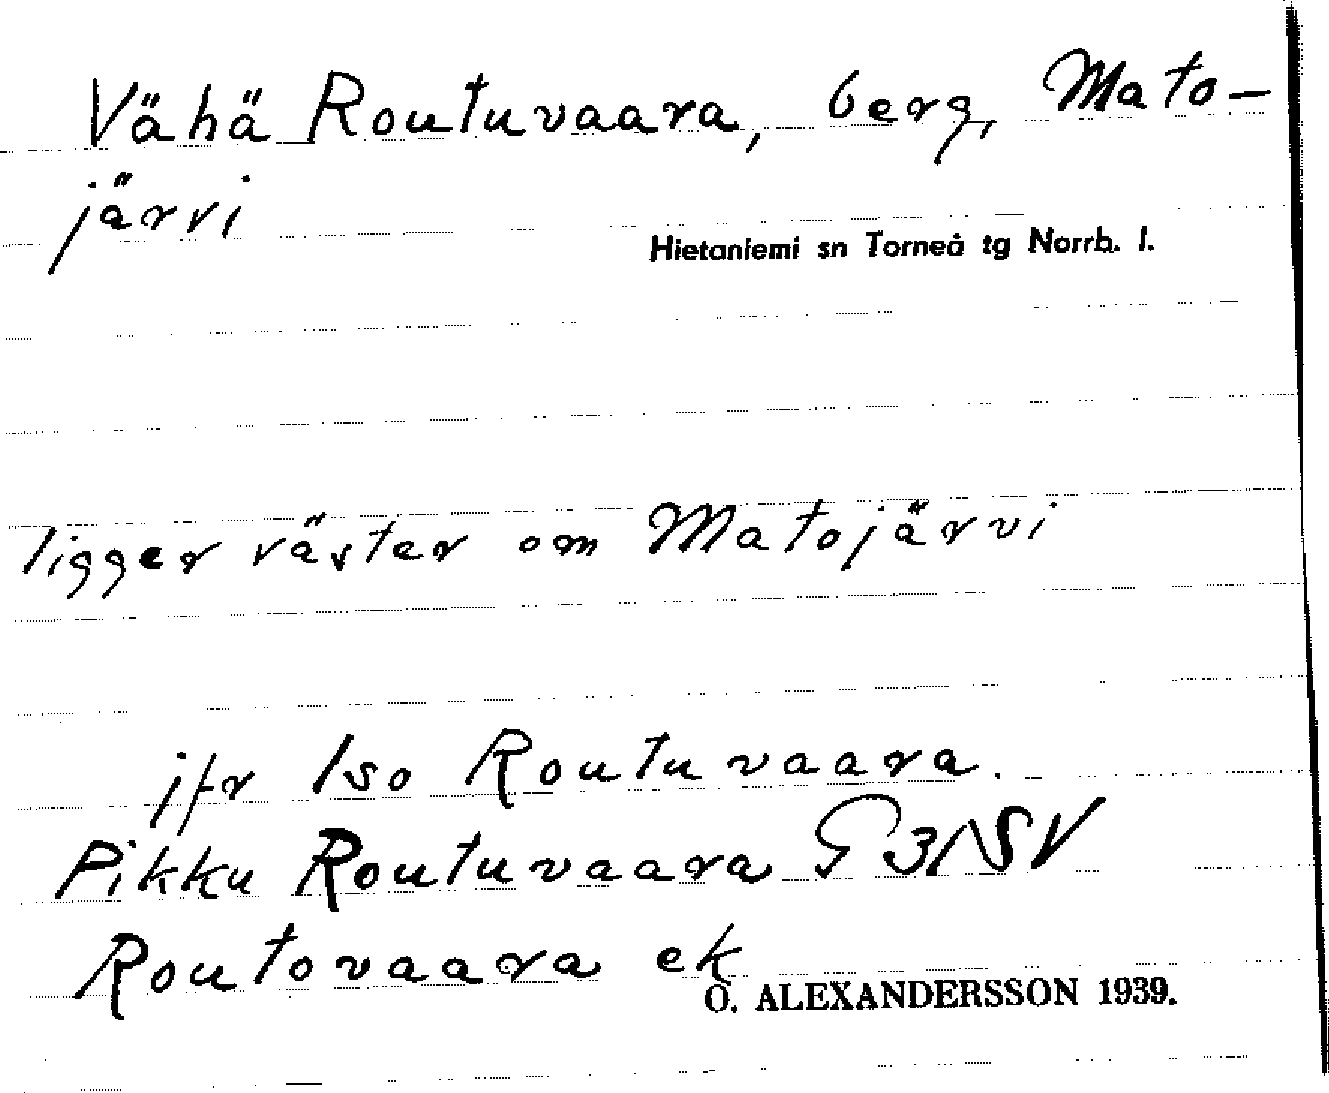 Vähä Routuvaara, berg, Mato-
järvi
Hietaniemi sn Torneå tg Norrb. l.
ligger väster om Matojärvi
jfr Iso Routuvaara.
Pikku Routuvaara G 31 SV
Routovaara ek
O. ALEXANDERSSON 1939.